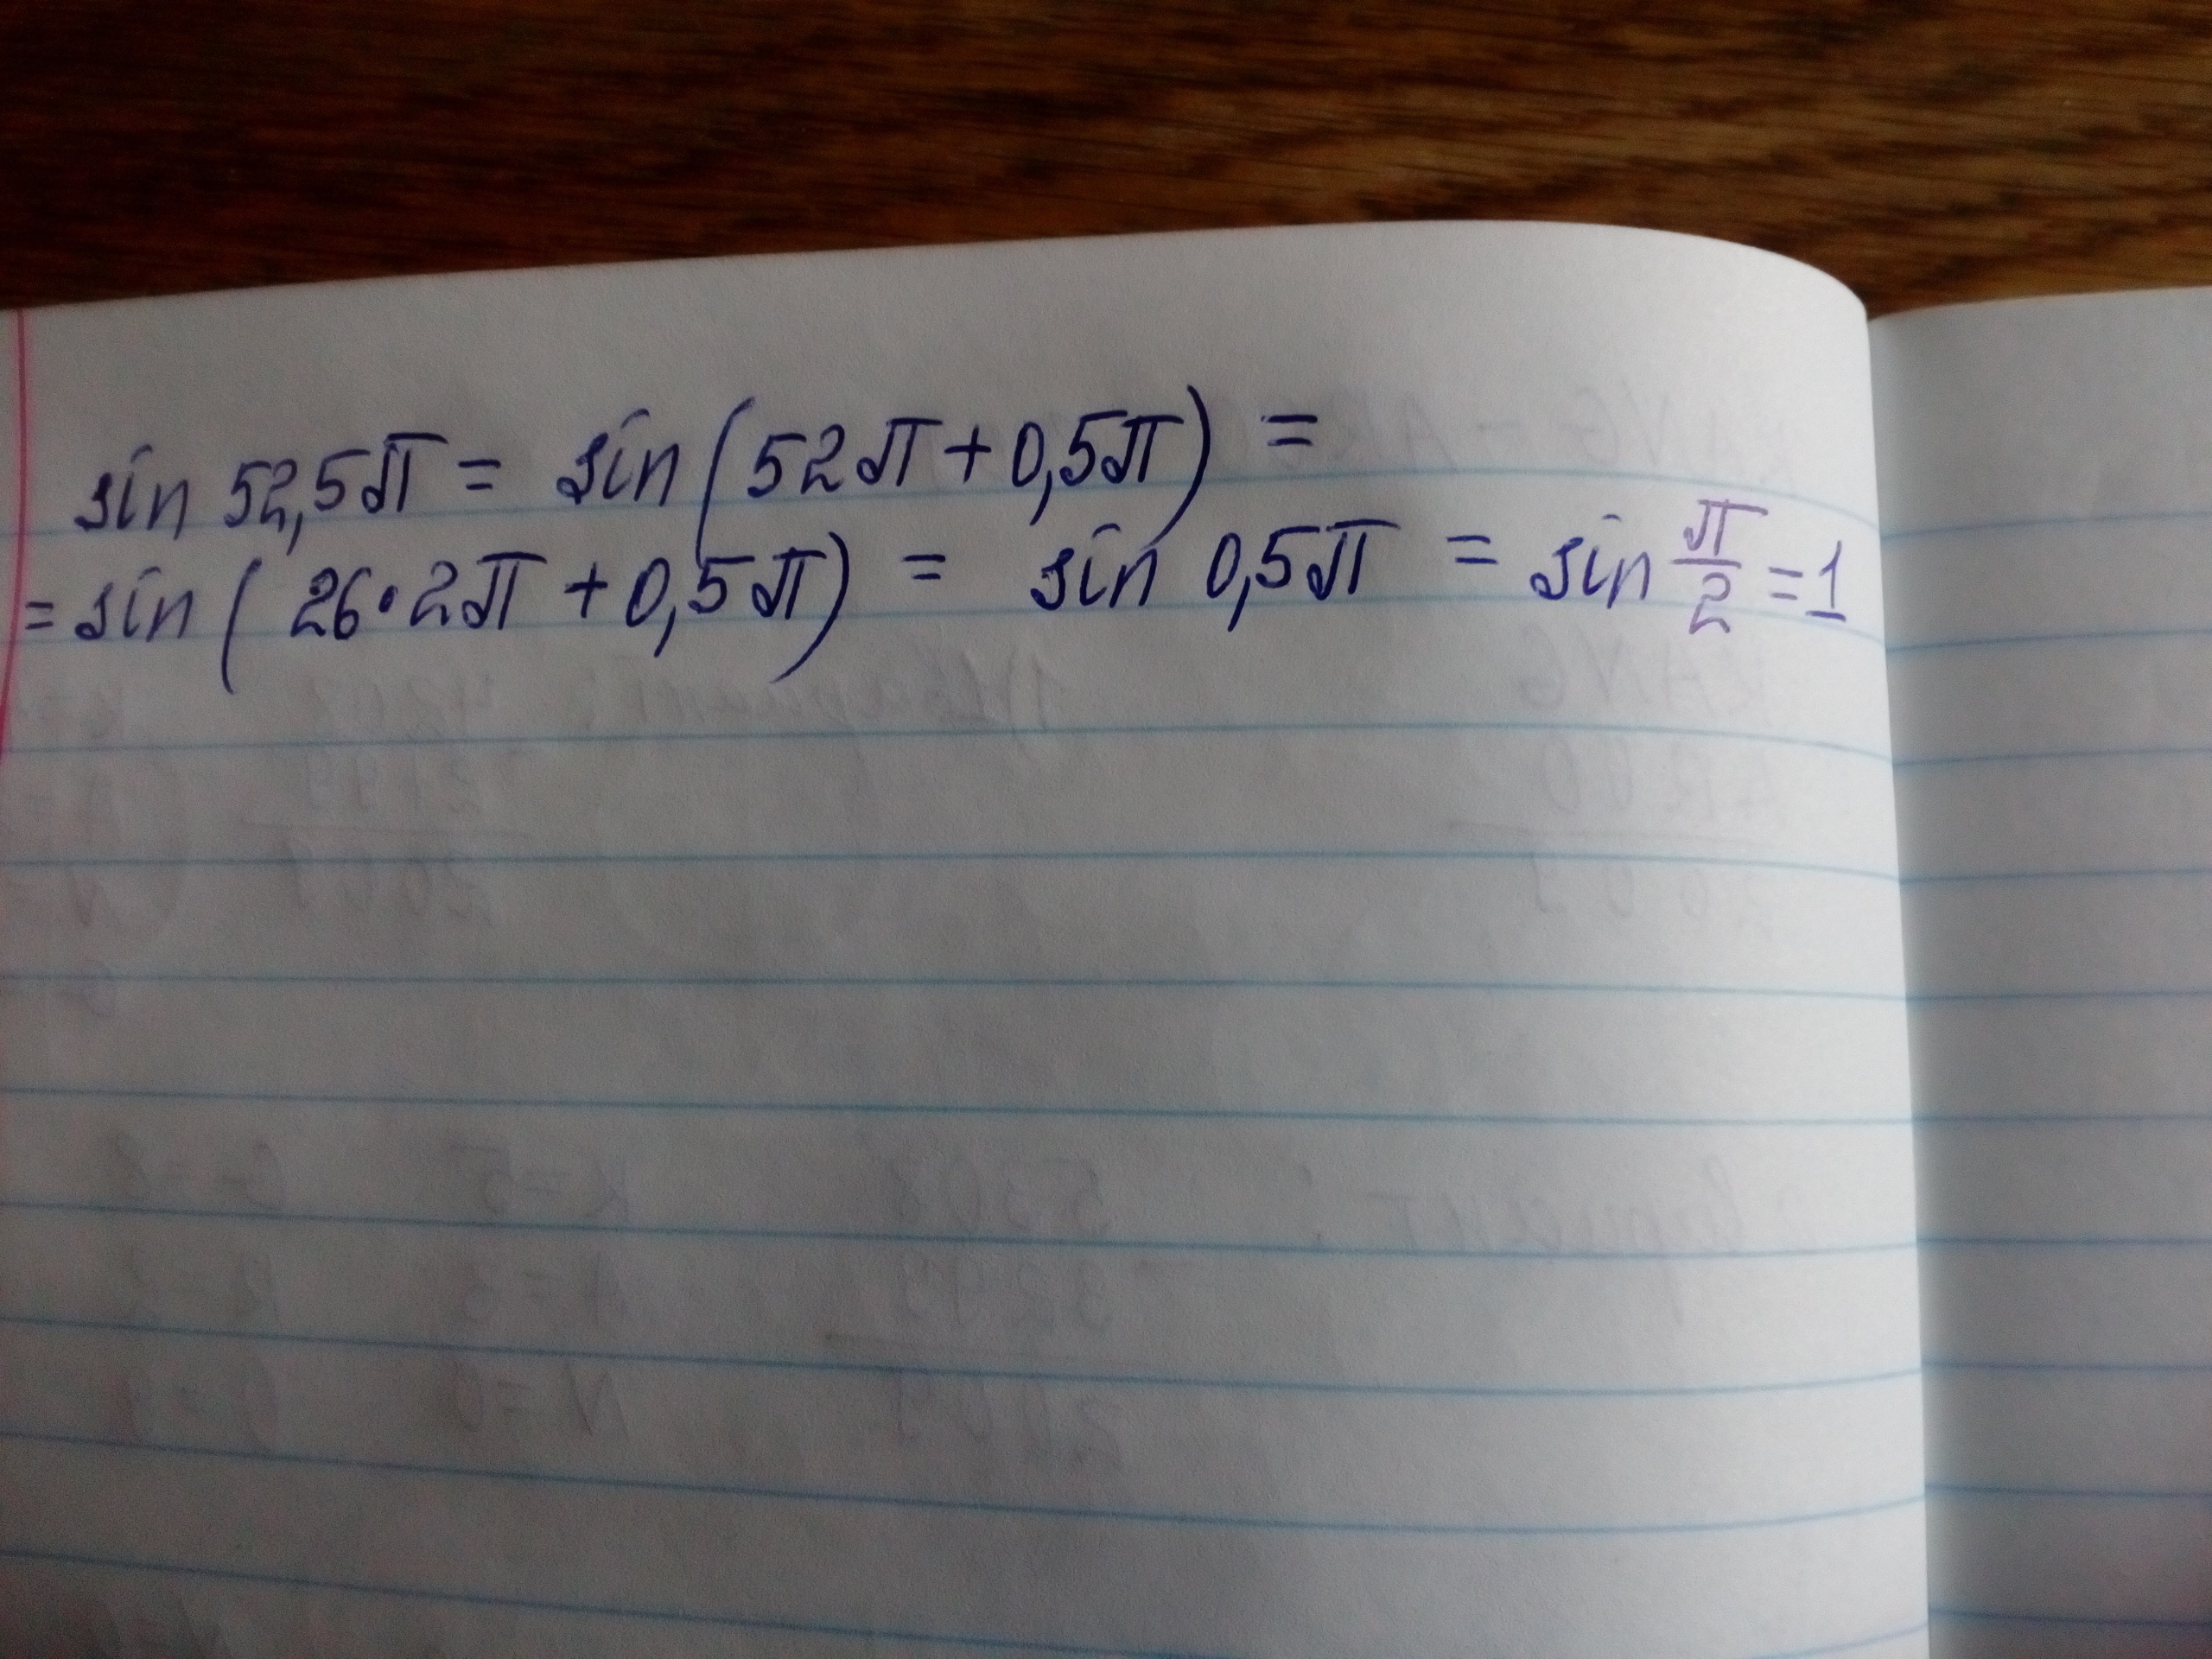 sin 52,5π = sin(52π + 0,5π) =
= sin(26·2π + 0,5π) = sin 0,5π = sin π/2 = 1